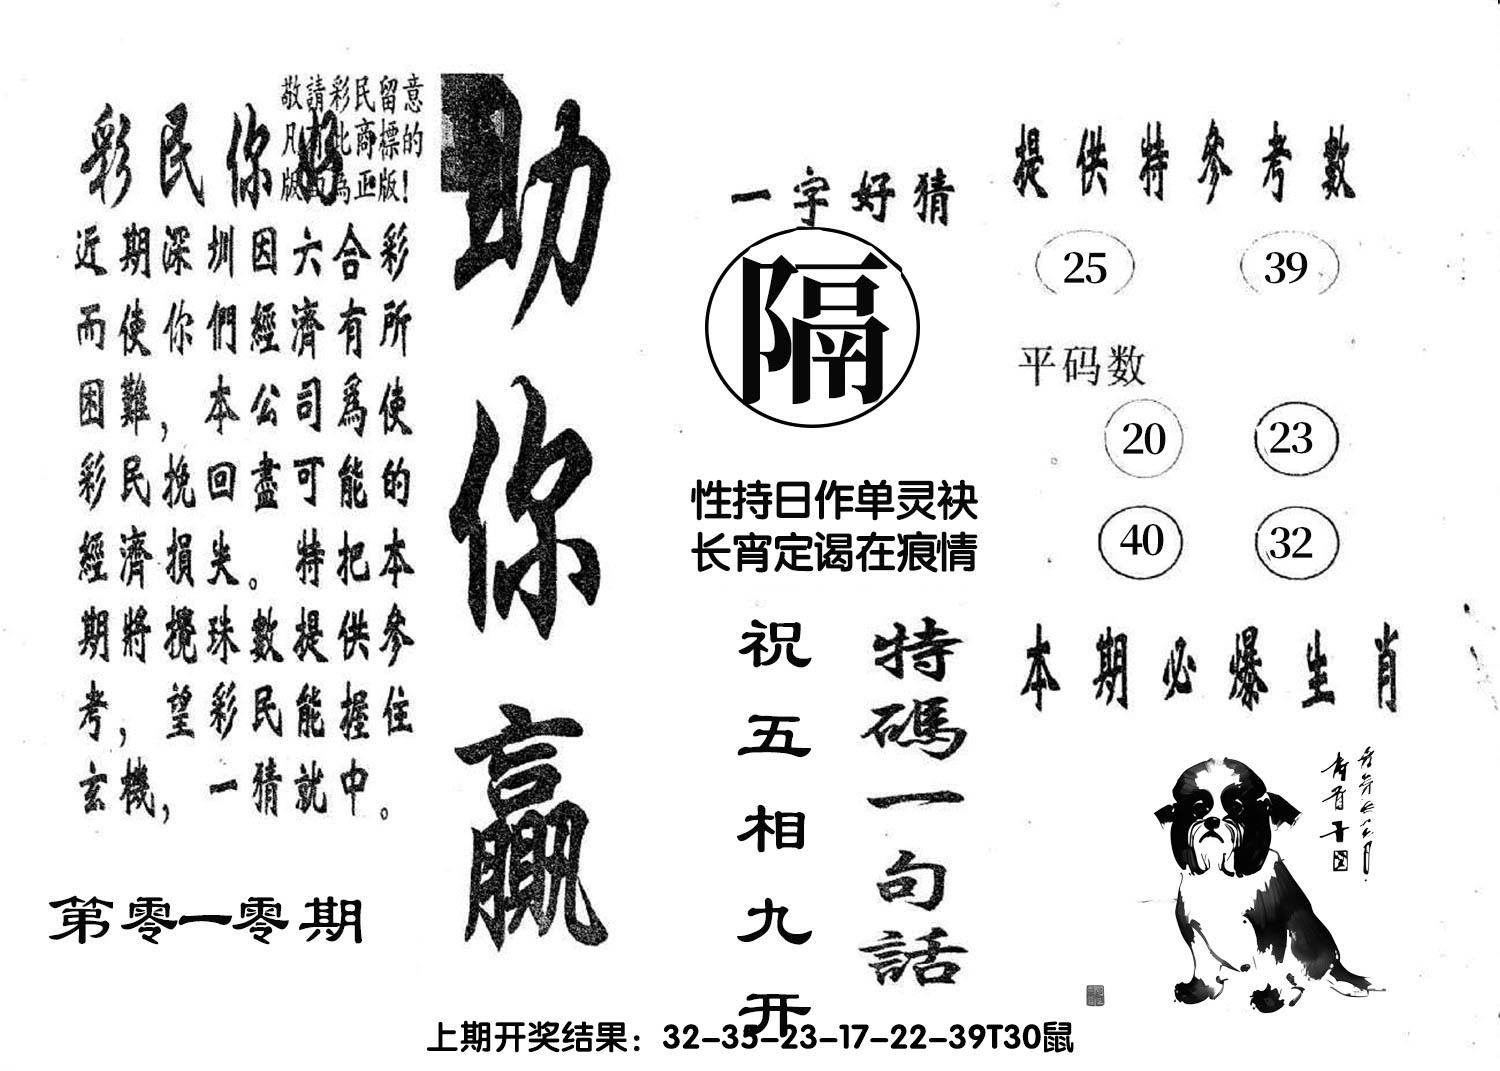 敬請彩民留意
凡有此商標的
版面為正版！
彩民你好
近期深圳因六合彩
而使你們經濟有所
困難，本公司爲使
彩民挽回盡可能的
經濟損失。特把本
期將攪珠數提供參
考，望彩民能握住
玄機，一猜就中。
第零一零期
助你贏
一字好猜
隔
性持日作单灵袂
长宵定谒在痕情
特碼一句話
祝五相九开
提供特參考數
25 39
平码数
20 23
40 32
本期必爆生肖
上期开奖结果：32-35-23-17-22-39T30鼠